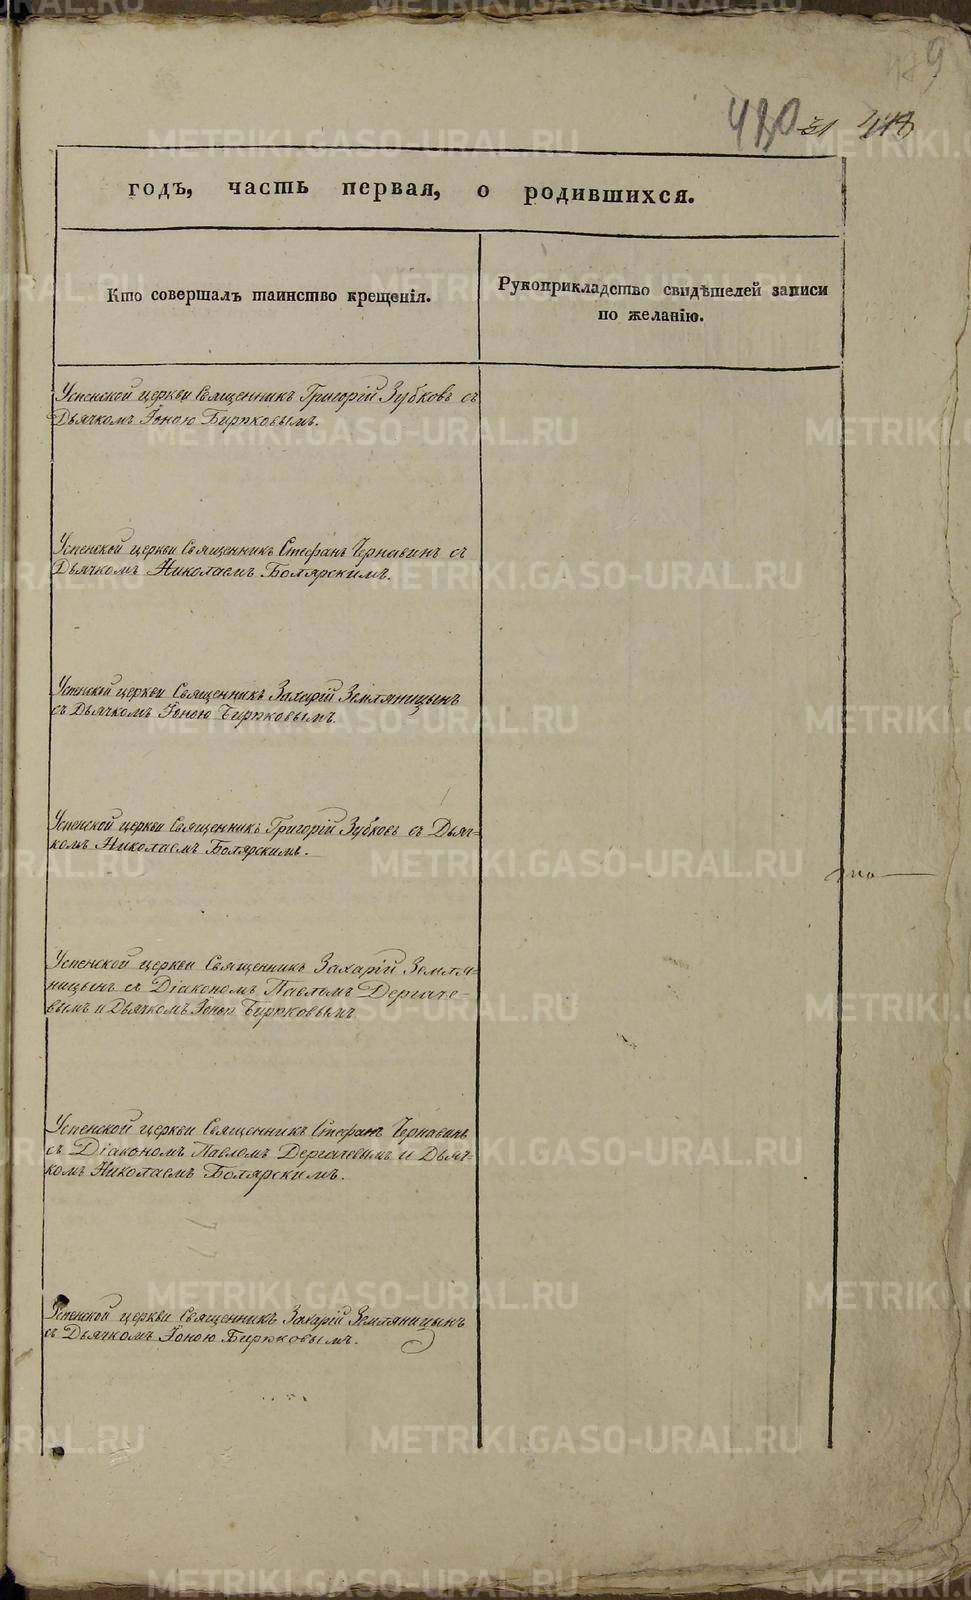 480 31 418
годъ, часть первая, о родившихся.
Кто совершалъ таинство крещенія.
Рукоприкладство свидѣтелей записи
по желанію.
Успенской церкви Священникъ Григорій Зубковъ съ
Дьячкомъ Іоною Бирюковымъ.
Успенской церкви Священникъ Стефанъ Чернавинъ съ
Дьячкомъ Николаемъ Болярскимъ.
Успенской церкви Священникъ Захарій Земляницынъ
съ Дьячкомъ Іоною Бирюковымъ.
Успенской церкви Священникъ Григорій Зубковъ съ Дьяч-
комъ Николаемъ Болярскимъ.
Успенской церкви Священникъ Захарій Земля-
ницынъ съ Діакономъ Павломъ Дергаче-
вымъ и Дьячкомъ Іоною Бирюковымъ.
Успенской церкви Священникъ Стефанъ Чернавинъ
съ Діакономъ Павломъ Дергачевымъ и Дьяч-
комъ Николаемъ Болярскимъ.
Успенской церкви Священникъ Захарій Земляницынъ
съ Дьячкомъ Іоною Бирюковымъ.
METRIKI.GASO-URAL.RU